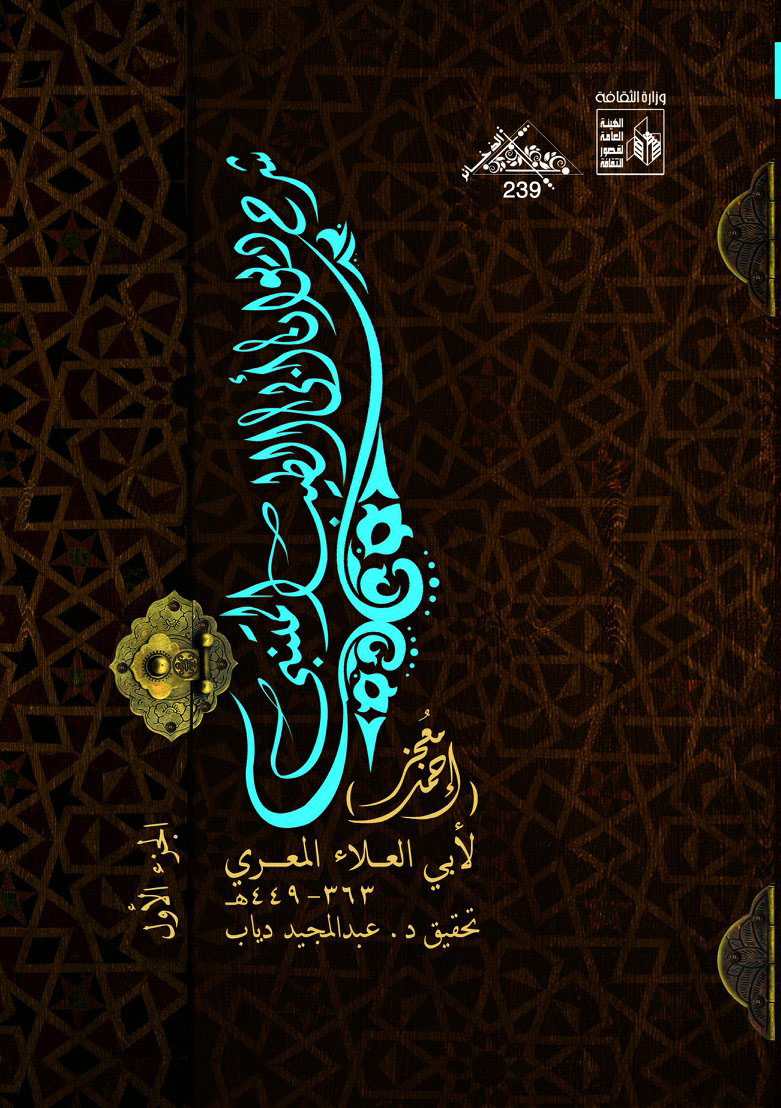 وزارة الثقافة
الهيئة
العامة
لقصور
الثقافة
الذخائر
239
شرح ديوان أبي الطيب المتنبي
(معُجز أحمد)
لأبي العلاء المعري
٣٦٣-٤٤٩هـ
تحقيق د. عبدالمجيد دياب
الجزء الأول